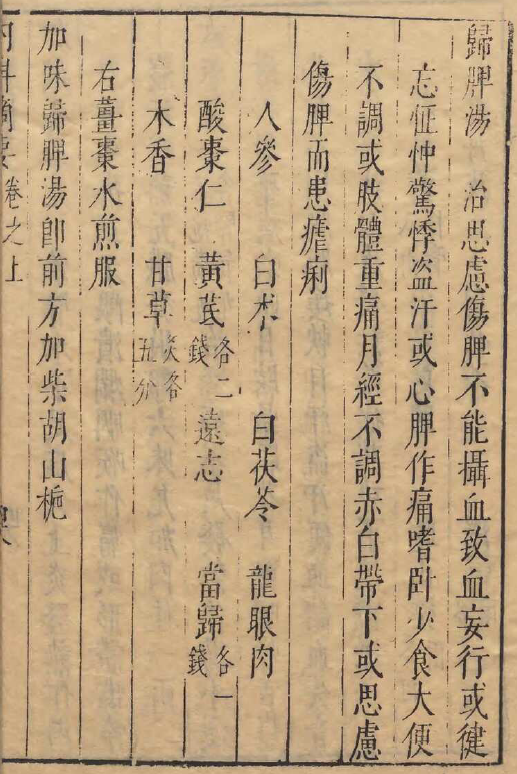 歸脾湯　治思慮傷脾不能攝血致血妄行或健
忘怔忡驚悸盗汗或心脾作痛嗜卧少食大便
不調或肢體重痛月經不調赤白帶下或思慮
傷脾而患瘧痢
人參　白术　白茯苓　龍眼肉
酸棗仁　黄芪各二錢　遠志　當歸各一錢
木香　甘草炙各五分
右薑棗水煎服
加味歸脾湯即前方加柴胡山梔
内科摘要　卷之上